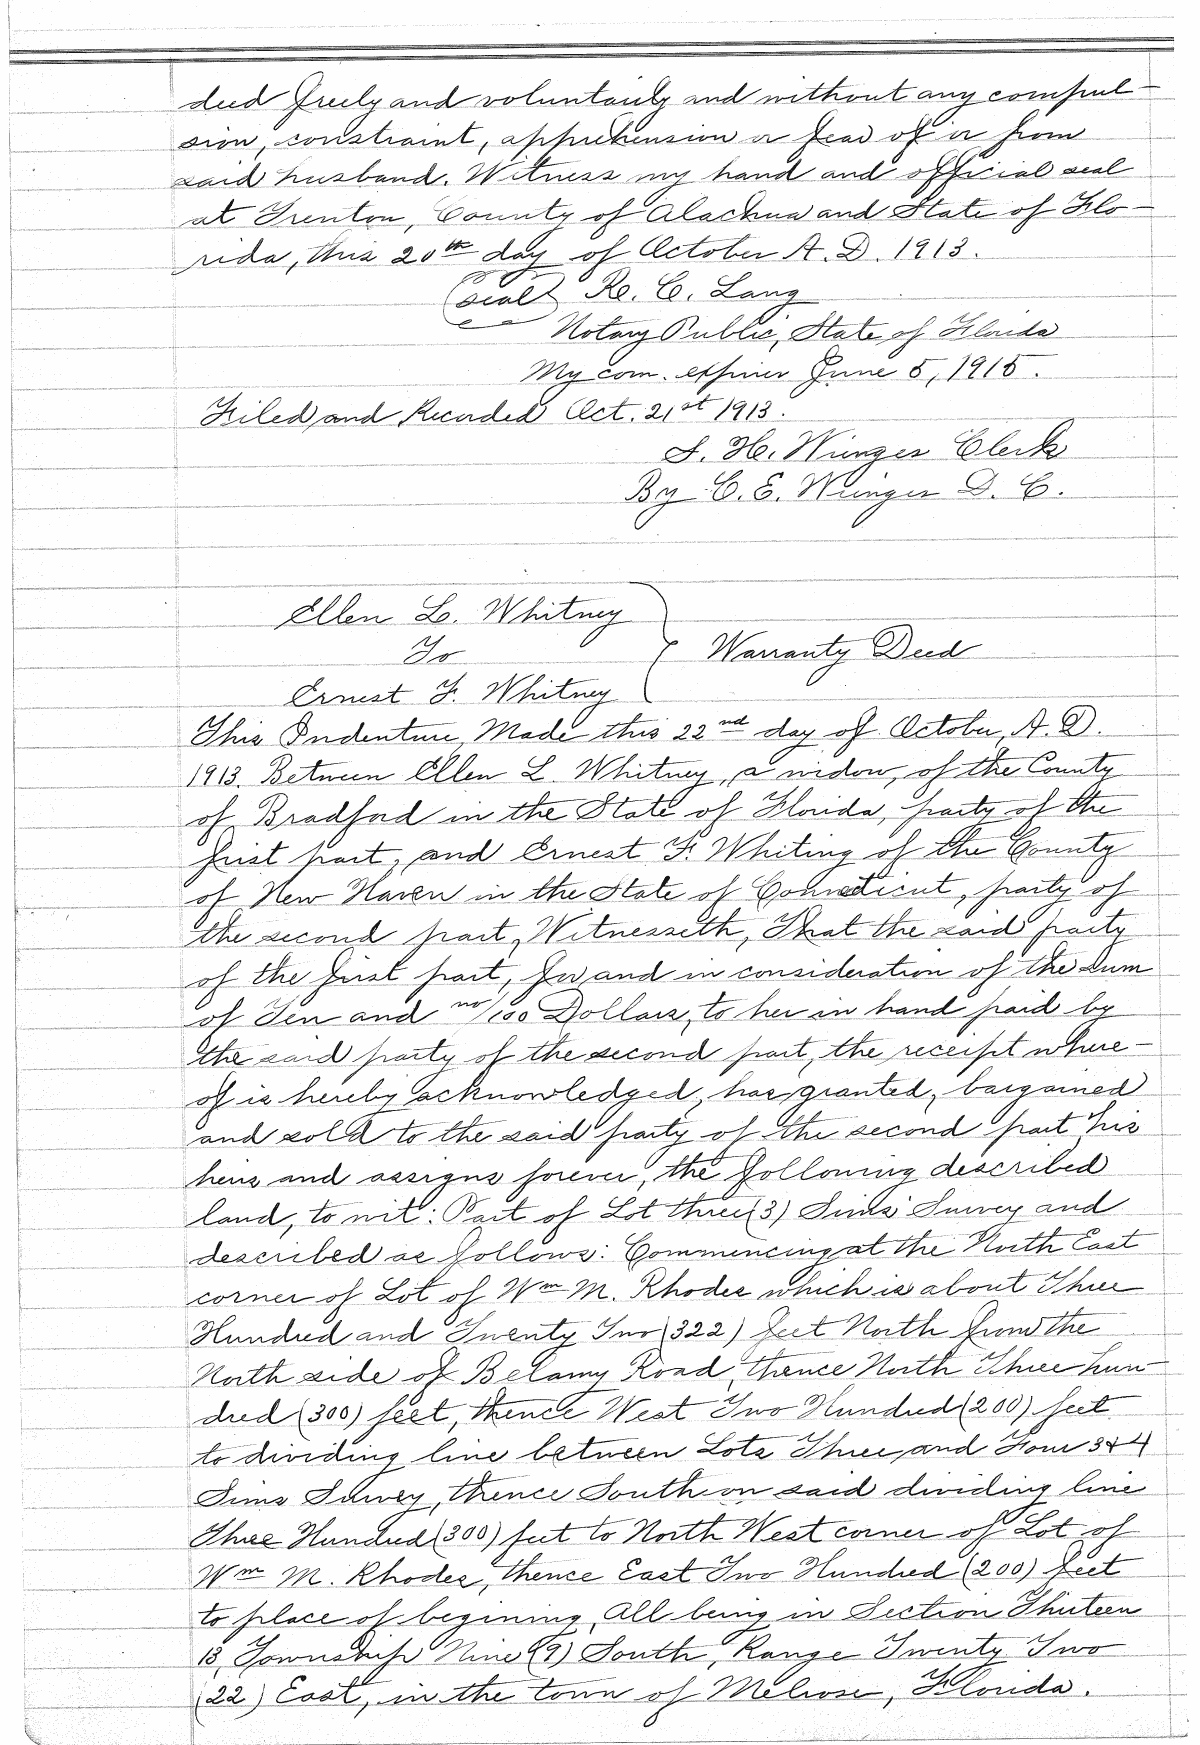 deed freely and voluntarily and without any compul-
sion, constraint, apprehension or fear of or from
said husband. Witness my hand and official seal
at Trenton, County of Alachua and State of Flo-
rida, this 20th day of October A. D. 1913.
(seal) R. C. Lang
Notary Public, State of Florida
My com. expires June 5, 1915.
Filed and Recorded Oct. 21st 1913.
S. H. Wienges Clerk
By C. E. Wienges D. C.
Ellen L. Whitney
To
Warranty Deed
Ernest F. Whitney
This Indenture, Made this 22nd day of October, A. D.
1913. Between Ellen L. Whitney, a widow, of the County
of Bradford in the State of Florida, party of the
first part, and Ernest F. Whiting of the County
of New Haven in the State of Connecticut, party of
the second part, Witnesseth, That the said party
of the first part, for and in consideration of the sum
of Ten and no/100 Dollars, to her in hand paid by
the said party of the second part, the receipt where-
of is hereby acknowledged, has granted, bargained
and sold to the said party of the second part his
heirs and assigns forever, the following described
land, to wit: Part of Lot three (3) Sims' Survey and
described as follows: Commencing at the North East
corner of Lot of Wm M. Rhodes which is about Three
Hundred and Twenty Two (322) feet North from the
North side of Belamy Road, thence North Three hun-
dred (300) feet, thence West Two Hundred (200) feet
to dividing line between Lots Three and Four 3 & 4
Sims Survey, thence South on said dividing line
Three Hundred (300) feet to North West corner of Lot of
Wm M. Rhodes, thence East Two Hundred (200) feet
to place of begining, All being in Section Thirteen
13, Township Nine (9) South, Range Twenty Two
(22) East, in the town of Melrose, Florida.